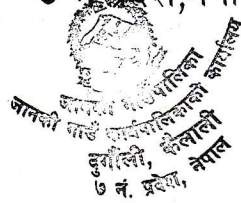 जानकी गाउँपालिका
जानकी गाउँ कार्यपालिकाको कार्यालय
दुर्गौली, कैलाली
७ नं. प्रदेश, नेपाल